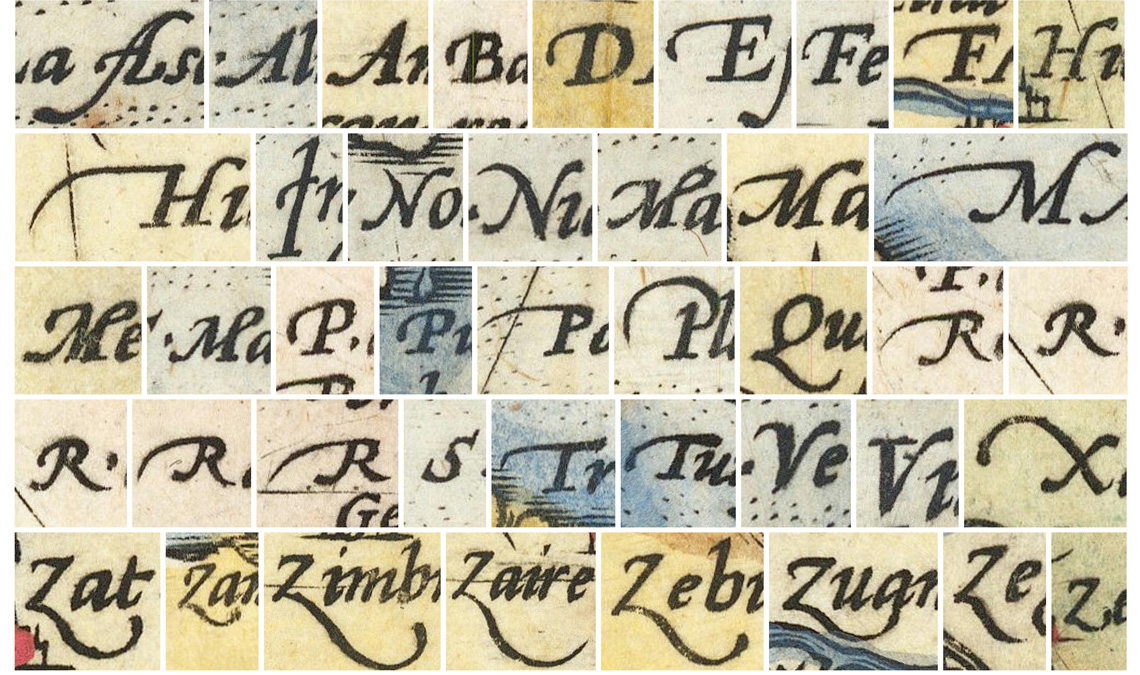 a Asc Al An Ba D E Fe F Hi
Hi In No Ni Ma Ma M
Me Ma P. Pi Po Pl Qu R R.
R. R. R S. Tr Tu Ve Vi X
Zat Zan Zimb Zaire Zebi Zugn Ze Ze